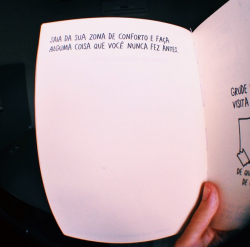 SAIA DA SUA ZONA DE CONFORTO E FAÇA
ALGUMA COISA QUE VOCÊ NUNCA FEZ ANTES.
GRUDE
VISITA
DE
DE